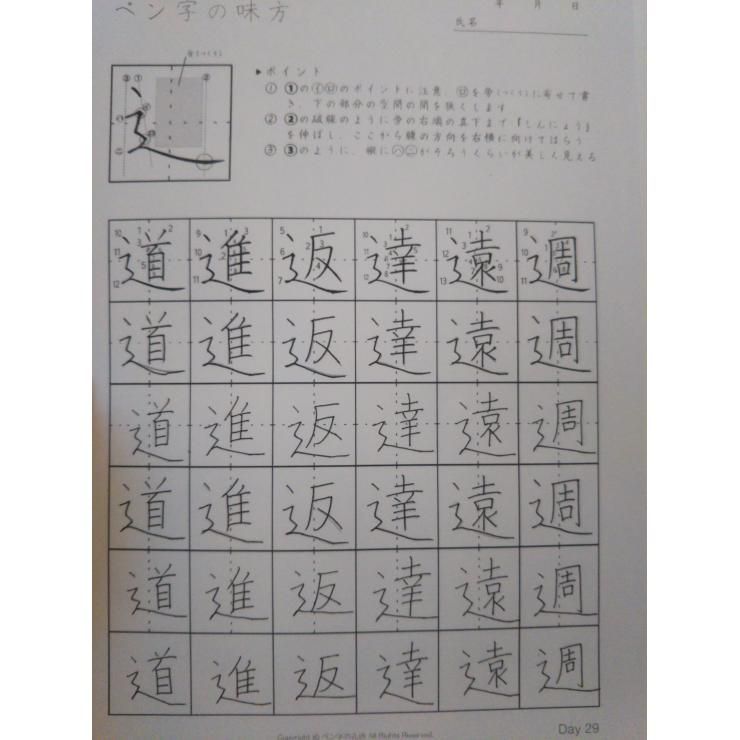 ペン字の味方
年 月 日
氏名
▶ポイント
① ❶の㋑㋺のポイントに注意。㋺を旁(つくり)に寄せて書
き、下の部分の空間の間を狭くします
② ❷の破線のように旁の右端の真下まで『しんにょう』
を伸ばし、ここから線の方向を右横に向けてはらう
③ ❸のように、縦に㋩㋥がそろうくらいが美しく見える
道 進 返 達 遠 週
道 進 返 達 遠 週
道 進 返 達 遠 週
道 進 返 達 遠 週
道 進 返 達 遠 週
道 進 返 達 遠 週
Copyright © ペン字の味方 All Rights Reserved.
Day 29